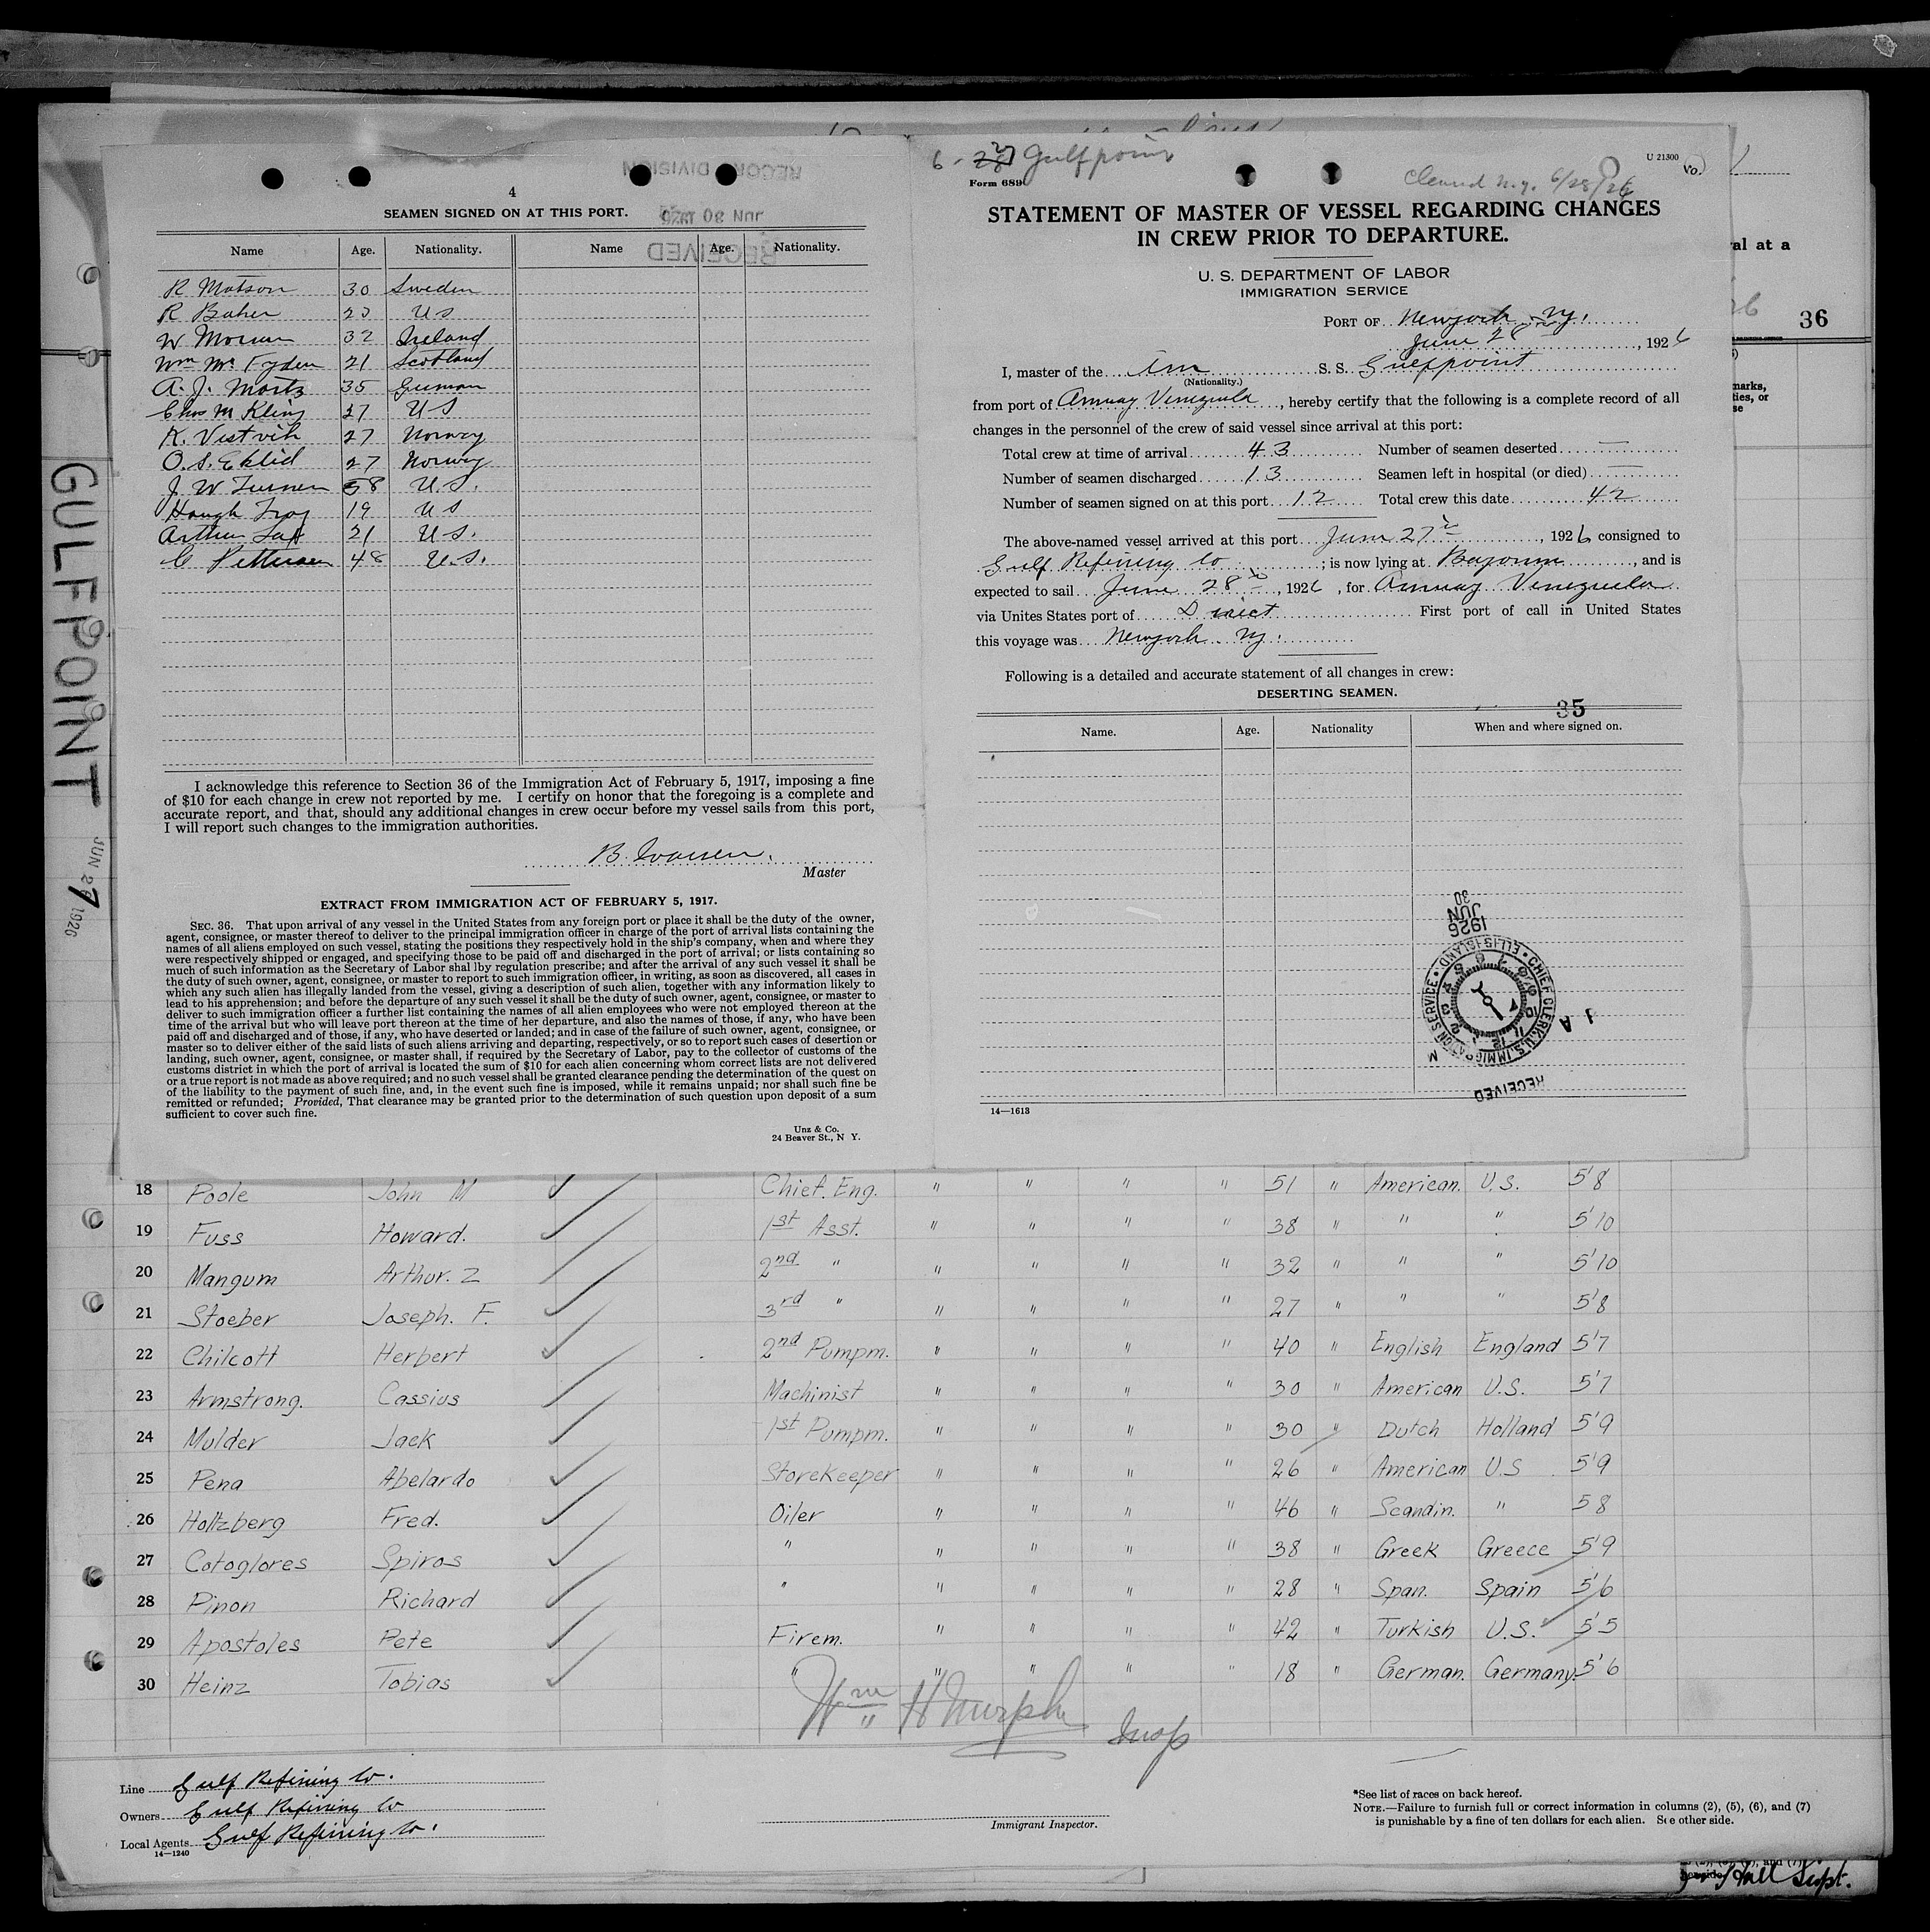 GULFPOINT
JUN 27 1926
4
SEAMEN SIGNED ON AT THIS PORT.
RECORD DIVISION
JUN 30 1926
RECEIVED
Name Age. Nationality. Name Age. Nationality.
R Matson 30 Sweden
R Baher US
W 32 Ireland
Wm Mc Fyden 21 Scotland
A. J. Moritz 35 German
Chas M Kling 27 US
K. Vestvik 27 Norway
O. S. Eklid 27 Norway
J. W Turner 58 U.S.
Hough 19 US
Arthur 21 U.S.
C Pettersen 48 U.S.
I acknowledge this reference to Section 36 of the Immigration Act of February 5, 1917, imposing a fine
of $10 for each change in crew not reported by me. I certify on honor that the foregoing is a complete and
accurate report, and that, should any additional changes in crew occur before my vessel sails from this port,
I will report such changes to the immigration authorities.
B. Iversen.
Master
EXTRACT FROM IMMIGRATION ACT OF FEBRUARY 5, 1917.
SEC. 36. That upon arrival of any vessel in the United States from any foreign port or place it shall be the duty of the owner,
agent, consignee, or master thereof to deliver to the principal immigration officer in charge of the port of arrival lists containing the
names of all aliens employed on such vessel, stating the positions they respectively hold in the ship's company, when and where they
were respectively shipped or engaged, and specifying those to be paid off and discharged in the port of arrival; or lists containing so
much of such information as the Secretary of Labor shal lby regulation prescribe; and after the arrival of any such vessel it shall be
the duty of such owner, agent, consignee, or master to report to such immigration officer, in writing, as soon as discovered, all cases in
which any such alien has illegally landed from the vessel, giving a description of such alien, together with any information likely to
lead to his apprehension; and before the departure of any such vessel it shall be the duty of such owner, agent, consignee, or master to
deliver to such immigration officer a further list containing the names of all alien employees who were not employed thereon at the
time of the arrival but who will leave port thereon at the time of her departure, and also the names of those, if any, who have been
paid off and discharged and of those, if any, who have deserted or landed; and in case of the failure of such owner, agent, consignee, or
master so to deliver either of the said lists of such aliens arriving and departing, respectively, or so to report such cases of desertion or
landing, such owner, agent, consignee, or master shall, if required by the Secretary of Labor, pay to the collector of customs of the
customs district in which the port of arrival is located the sum of $10 for each alien concerning whom correct lists are not delivered
or a true report is not made as above required; and no such vessel shall be granted clearance pending the determination of the quest on
of the liability to the payment of such fine, and, in the event such fine is imposed, while it remains unpaid; nor shall such fine be
remitted or refunded; Provided, That clearance may be granted prior to the determination of such question upon deposit of a sum
sufficient to cover such fine.
Unz & Co.
24 Beaver St., N Y.
6-27 Gulfpoint
Form 689
Cleared N.y. 6/28/26
U 21300
Vo.
STATEMENT OF MASTER OF VESSEL REGARDING CHANGES
IN CREW PRIOR TO DEPARTURE.
U. S. DEPARTMENT OF LABOR
IMMIGRATION SERVICE
PORT OF Newyork Ny.
June 28th, 1926
I, master of the Am S. S. Gulfpoint
(Nationality.)
from port of Amuay Venezuela, hereby certify that the following is a complete record of all
changes in the personnel of the crew of said vessel since arrival at this port:
Total crew at time of arrival 43 Number of seamen deserted —
Number of seamen discharged 13 Seamen left in hospital (or died) —
Number of seamen signed on at this port 12 Total crew this date 42
The above-named vessel arrived at this port June 27th, 1926 consigned to
Gulf Refining Co; is now lying at Bayonne, and is
expected to sail June 28th, 1926, for Amuay Venezuela
via Unites States port of Direct First port of call in United States
this voyage was Newyork Ny.
Following is a detailed and accurate statement of all changes in crew:
DESERTING SEAMEN.
35
Name. Age. Nationality When and where signed on.
1926 JUN 30
CHIEF CLERK U.S. IMMIGRATION SERVICE • ELLIS ISLAND •
RECEIVED
14—1613
val at a
36
marks,
ties, or
se
18 Poole John M Chief. Eng. " " " " 51 " American. U.S. 5'8
19 Fuss Howard. 1st Asst. " " " " 38 " " " 5'10
20 Mangum Arthur. Z 2nd " " " " " 32 " " " 5'10
21 Stoeber Joseph. F. 3rd " " " " " 27 " " " 5'8
22 Chilcott Herbert 2nd Pumpm. " " " " 40 " English England 5'7
23 Armstrong. Cassius Machinist " " " " 30 " American U.S. 5'7
24 Mulder Jack 1st Pumpm. " " " " 30 " Dutch Holland 5'9
25 Pena Abelardo Storekeeper " " " " 26 " American U.S 5'9
26 Holtzberg Fred. Oiler " " " " 46 " Scandin. " 58
27 Cotoglores Spiros " " " " " 38 " Greek Greece 5'9
28 Pinon Richard " " " " " 28 " Span. Spain 5'6
29 Apostoles Pete Firem. " " " " 42 " Turkish U.S. 5'5
30 Heinz Tobias " " " " " 18 " German. Germany. 5'6
Wm H Murphy Insp
Line Gulf Refining Co.
Owners Gulf Refining Co
Local Agents Gulf Refining Co.
14—1240
Immigrant Inspector.
*See list of races on back hereof.
NOTE.—Failure to furnish full or correct information in columns (2), (5), (6), and (7)
is punishable by a fine of ten dollars for each alien. See other side.
Hall Supt.